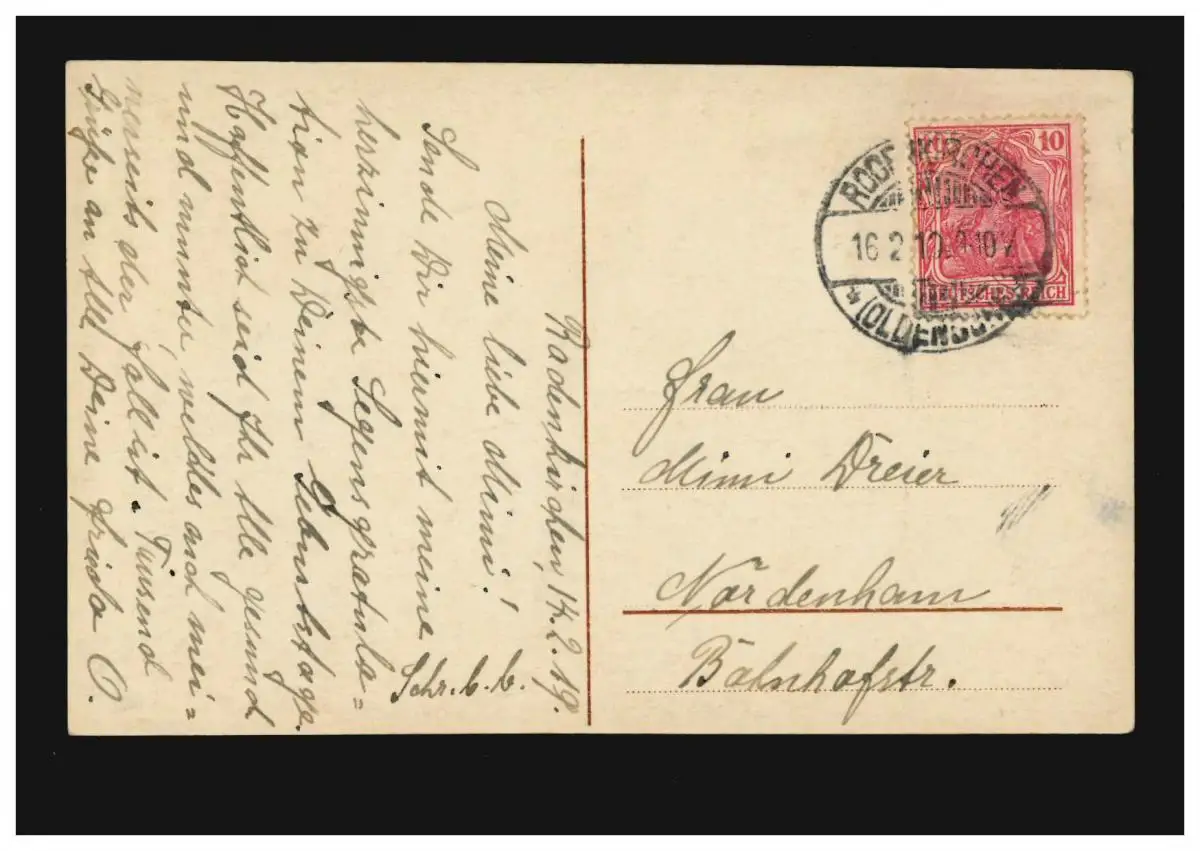 Rodenkirchen, 14.2.19.
Meine liebe Mimi!
Sende Dir hiermit meine
herzinnigste Segensgratula=
tion zu Deinem Geburtstage.
Hoffentlich seid Ihr alle gesund
und munter, welches auch mei=
nerseits der Fall ist. Tausend
Grüße an alle Deine Frieda O.
Schr. b. b.
10
DEUTSCHES REICH
RODENKIRCHEN
16.2.19. 9-10V
(OLDENBURG)
Frau
Mimi Dreier
Nordenham
Bahnhofstr.